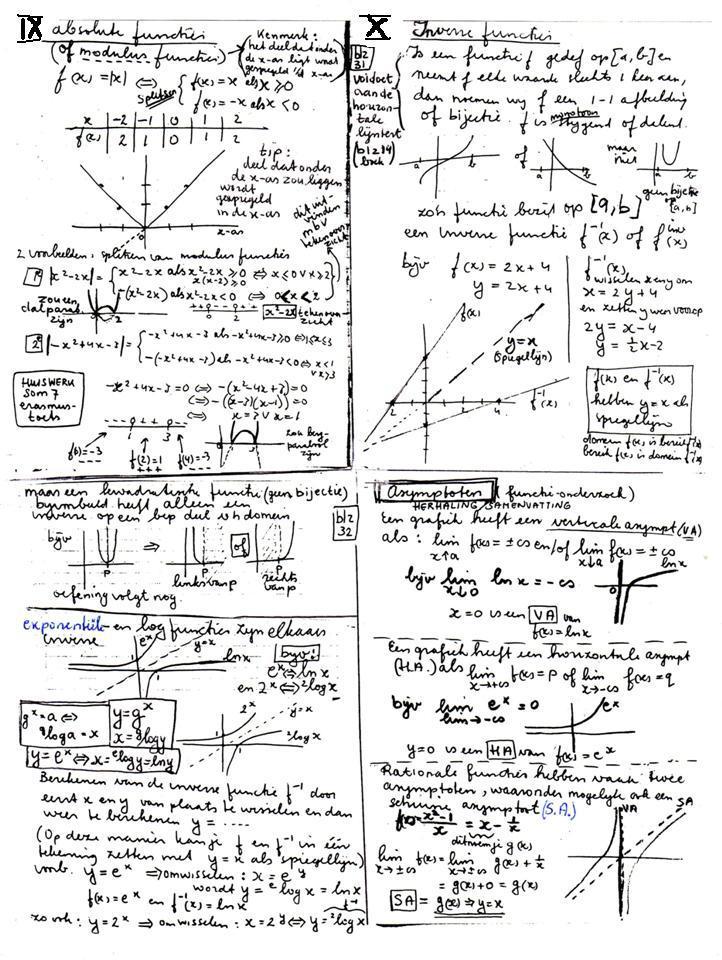 IX absolute functies
(of modulus functies)
Kenmerk:
het deel dat onder
de x-as ligt wordt
gespiegeld i/d x-as
f(x) = |x| ⇔ { f(x) = x als x ≥ 0
splitsen
f(x) = -x als x < 0
x -2 -1 0 1 2
f(x) 2 1 0 1 2
tip:
deel dat onder
de x-as zou liggen
wordt
gespiegeld
in de x-as
x-as
0
dit uit-
vinden
mbv
tekenover-
zicht
2 voorbeelden, splitsen van modulus functies
1e |x²-2x| = { x²-2x als x²-2x ≥ 0 ⇔ x ≤ 0 v x ≥ 2
x(x-2) ≥ 0
-(x²-2x) als x²-2x < 0 ⇔ 0 < x < 2
zou een
dalparab.
zijn
0 2
x²-2x tekenover-
zicht
2e |-x²+4x-3| = { -x²+4x-3 als -x²+4x-3 ≥ 0 ⇔ 1 ≤ x ≤ 3
-(-x²+4x-3) als -x²+4x-3 < 0 ⇔ x < 1
v x > 3
HUISWERK
som 7
erasmus-
toets
-x²+4x-3 = 0 ⇔ -(x²-4x+3) = 0
⇔ -(x-3)(x-1) = 0
⇔ x = 3 v x = 1
--- 0 + + 0 ---
1 3
f(0) = -3
f(2) = 1
+++
f(4) = -3
zou berg-
parabool
zijn
X Inverse functies
blz
31
voldoet
aan de
horizon-
tale
lijntest
(blz 14
boek)
Is een functie f gedef op [a,b] en
neemt f elke waarde slechts 1 keer aan,
dan noemen wij f een 1-1 afbeelding
of bijectie. f is monotoon stijgend of dalend.
of
maar
niet
a b a b a b
geen bijectie
op [a,b]
zo'n functie bezit op [a,b]
een inverse functie f⁻¹(x) of f inv (x)
bijv f(x) = 2x+4
y = 2x+4
f⁻¹(x)
wisselen x en y om
x = 2y+4
en zetten y weer voorop
2y = x-4
y = ½x-2
f(x)
y=x
(spiegellijn)
f⁻¹(x)
-2 4
f(x) en f⁻¹(x)
hebben y=x als
spiegellijn
domein f(x) is bereik f⁻¹(x)
bereik f(x) is domein f⁻¹(x)
maar een kwadratische functie (geen bijectie)
bijvoorbeeld heeft alleen een
inverse op een bep deel v h domein
blz
32
bijv ⇒ of
p p p
links van p
rechts
van p
oefening volgt nog.
exponentiële en log functies zijn elkaars
inverse
eˣ
y=x
ln x
1
bijv:
eˣ ⇔ ln x
en 2ˣ ⇔ ²log x
gˣ = a ⇔
ᵍlog a = x
y = gˣ
x = ᵍlog y
2ˣ
y=x
²log x
1
y = eˣ ⇔ x = ᵉlog y = ln y
Berekenen van de inverse functie f⁻¹ door
eerst x en y van plaats te wisselen en dan
weer te berekenen y = ....
(Op deze manier kan je f en f⁻¹ in één
tekening zetten met y=x als spiegellijn)
voorb. y = eˣ ⇒ omwisselen: x = eʸ
wordt y = ᵉlog x = ln x
f(x) = eˣ en f⁻¹(x) = ln x
f⁻¹
zo ook: y = 2ˣ ⇒ omwisselen: x = 2ʸ ⇔ y = ²log x
Asymptoten (functie-onderzoek)
HERHALING/SAMENVATTING
Een grafiek heeft een verticale asympt (VA)
als: lim f(x) = ±∞ en/of lim f(x) = ±∞
x↑a x↓a
bijv lim ln x = -∞
x↓0
ln x
0
x = 0 is een VA van
f(x) = ln x
Een grafiek heeft een horizontale asympt
(H.A.) als lim f(x) = p of lim f(x) = q
x→+∞ x→-∞
bijv lim eˣ = 0
lim→-∞
eˣ
y=0 is een HA van f(x) = eˣ
Rationale functies hebben vaak twee
asymptoten, waaronder mogelijk ook een
scheve asymptoot (S.A.)
VA SA
f(x) = x²-1/x = x - 1/x
dit noem je g(x)
lim f(x) = lim g(x) + 1/x
x→±∞ x→±∞
= g(x)+0 = g(x)
SA = g(x) ⇒ y=x